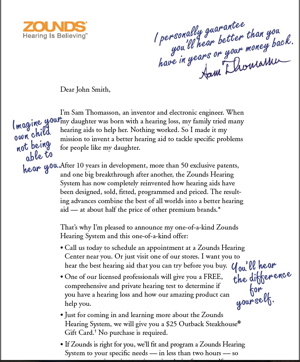 ZOUNDS
Hearing Is Believing™
I personally guarantee
you'll hear better than you
have in years or your money back.
Sam Thomasson
Dear John Smith,
I'm Sam Thomasson, an inventor and electronic engineer. When
my daughter was born with a hearing loss, my family tried many
hearing aids to help her. Nothing worked. So I made it my
mission to invent a better hearing aid to tackle specific problems
for people like my daughter.
Imagine your
own child
not being
able to
hear you.
After 10 years in development, more than 50 exclusive patents,
and one big breakthrough after another, the Zounds Hearing
System has now completely reinvented how hearing aids have
been designed, sold, fitted, programmed and priced. The result-
ing advances combine the best of all worlds into a better hearing
aid — at about half the price of other premium brands.*
That's why I'm pleased to announce my one-of-a-kind Zounds
Hearing System and this one-of-a-kind offer:
• Call us today to schedule an appointment at a Zounds Hearing
Center near you. Or just visit one of our stores. I want you to
hear the best hearing aid that you can try before you buy.
• One of our licensed professionals will give you a FREE,
comprehensive and private hearing test to determine if
you have a hearing loss and how our amazing product can
help you.
You'll hear
the difference
for
yourself.
• Just for coming in and learning more about the Zounds
Hearing System, we will give you a $25 Outback Steakhouse®
Gift Card.† No purchase is required.
• If Zounds is right for you, we'll fit and program a Zounds Hearing
System to your specific needs — in less than two hours — so